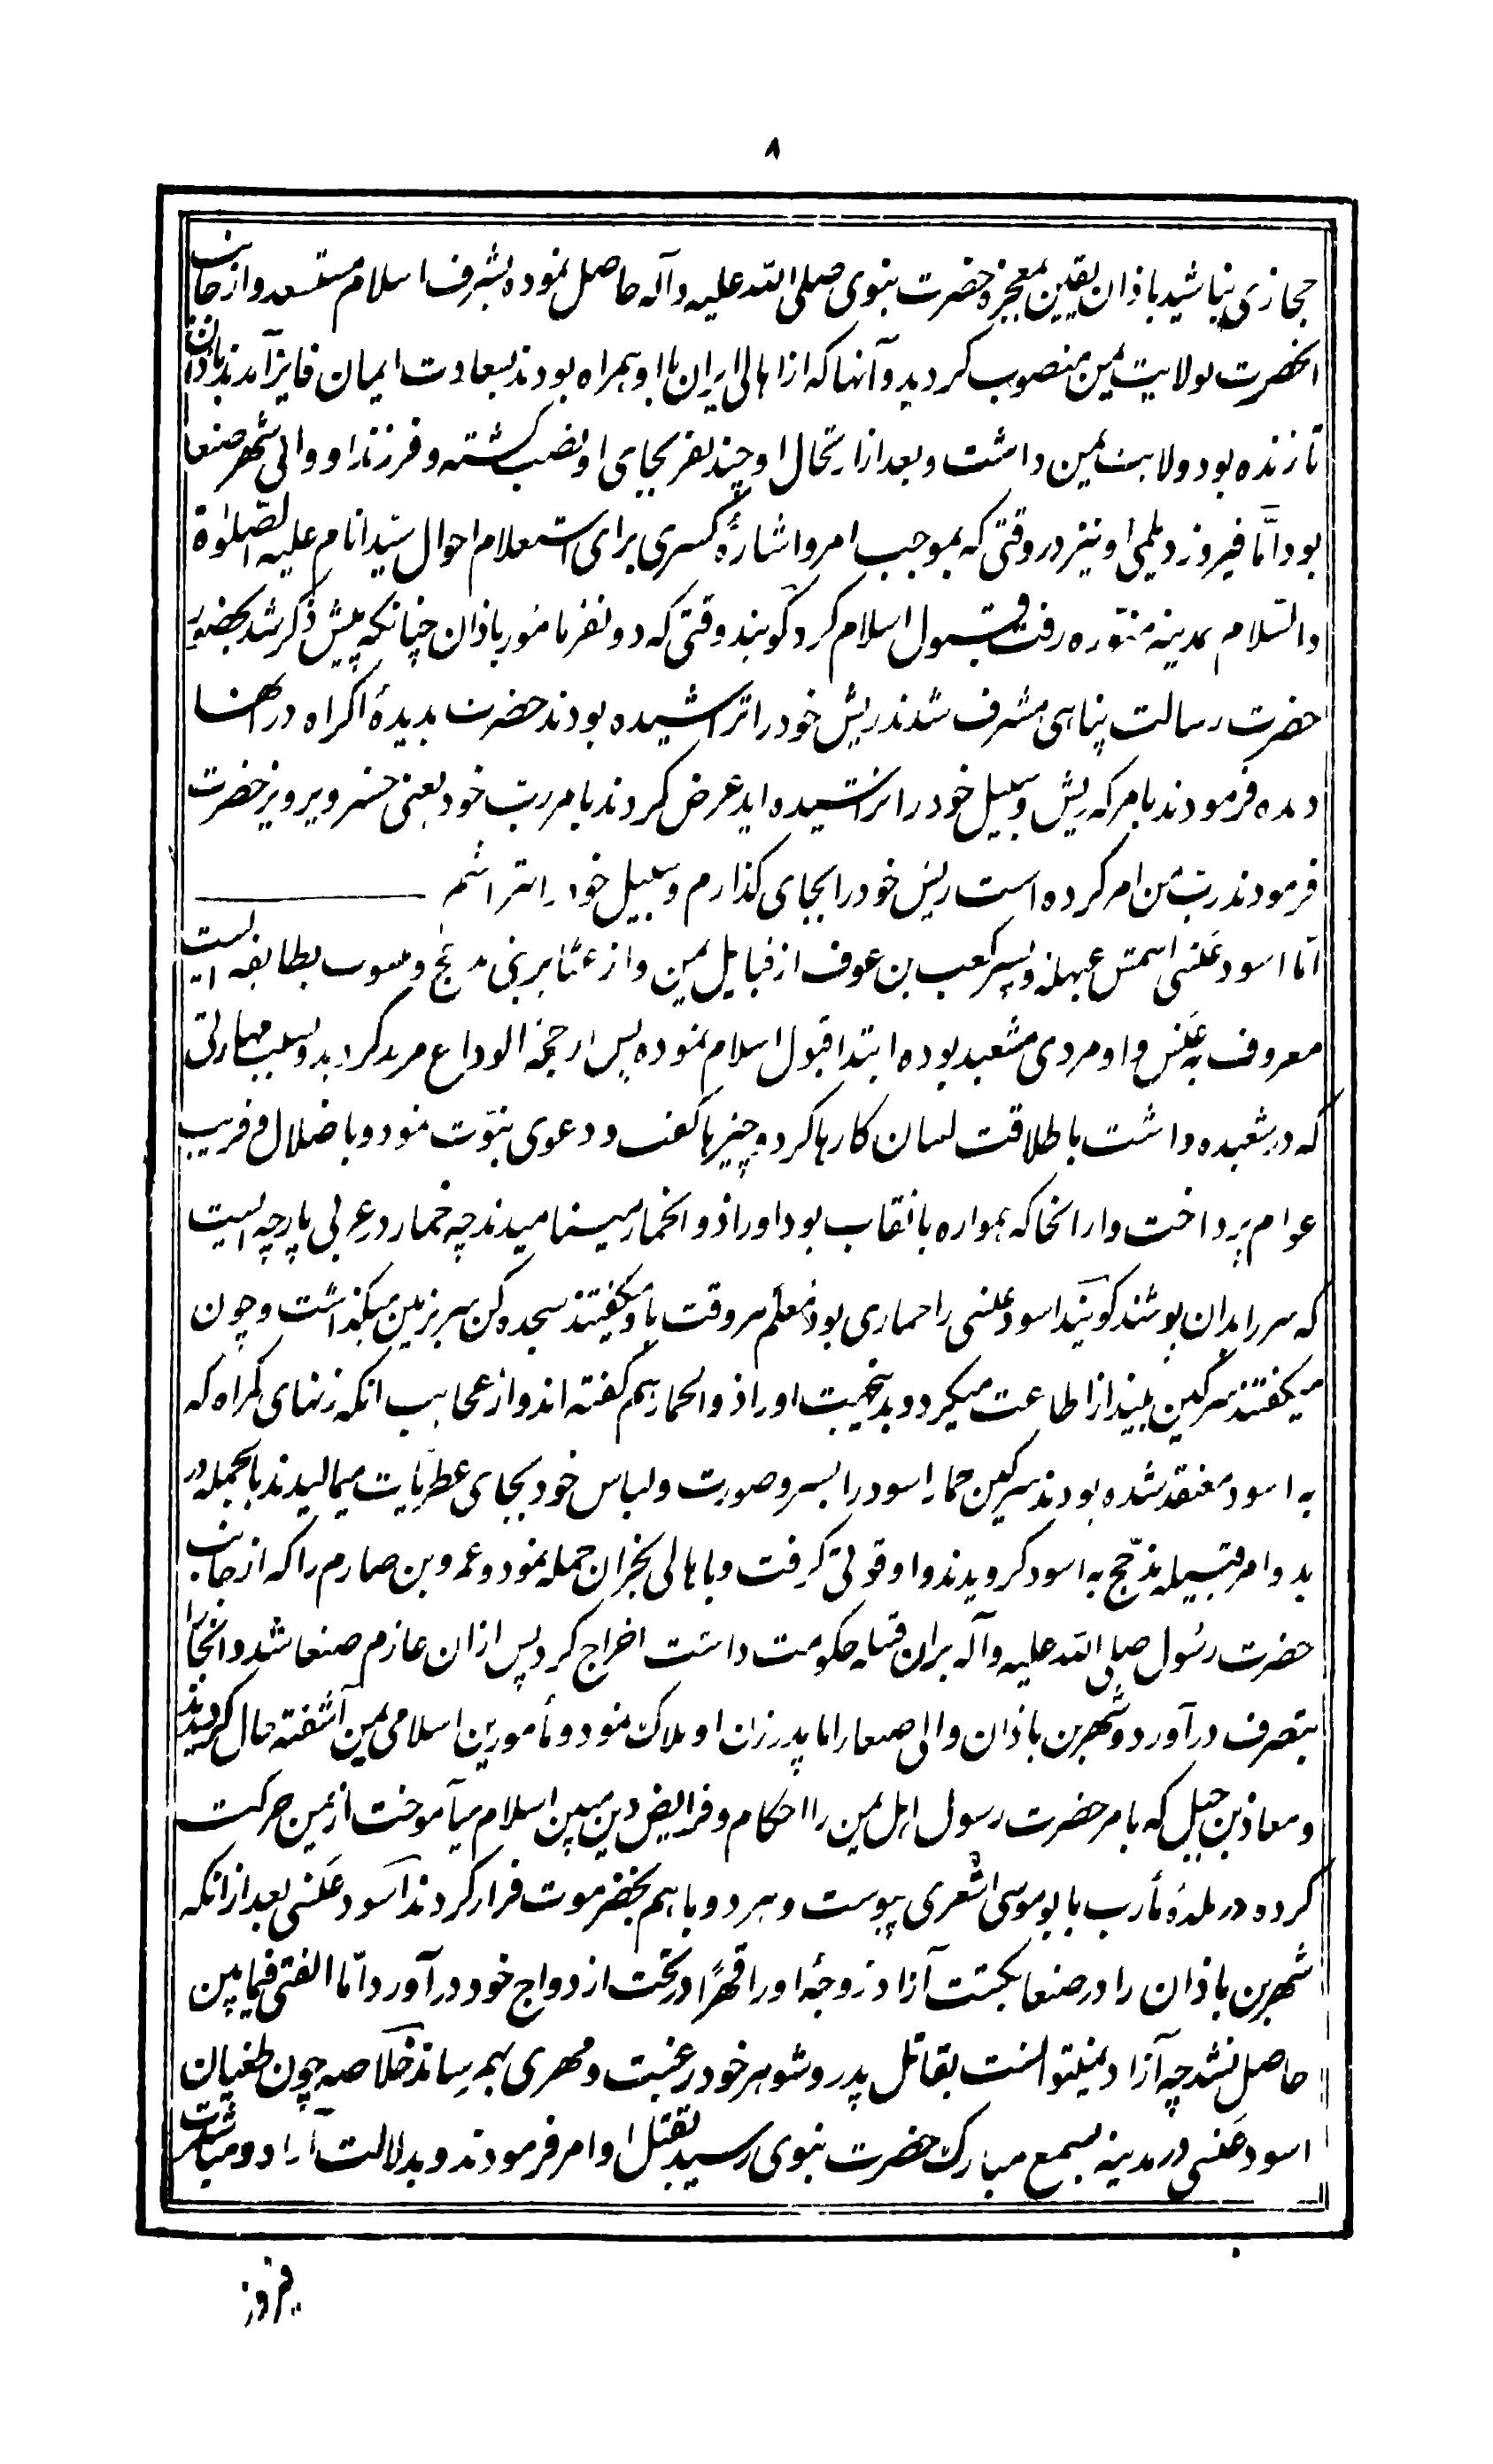 ۸
حجازی نباشید باذان یقین بمعجزه حضرت نبوی صلی الله علیه وآله حاصل نموده بشرف اسلام مستسعد و از جانب
انحضرت بولایت یمن منصوب کردید وآنها که از اهالی ایران با او همراه بودند بسعادت ایمان فایز آمدند باذان
تا زنده بود ولایت یمن داشت و بعد از ارتحال او چند نفر بجای او نصب کشته و فرزند او والی شهر صنعا
بود امّا فیروز دیلمی او نیز در وقتی که بموجب امر و اشارهٔ کسری برای استعلام احوال سیّد انام علیه الصّلوٰة
والسّلام بمدینه منوّره رفت قبول اسلام کرد کویند وقتی که دو نفر مامور باذان چنانکه پیش ذکر شد بحضور
حضرت رسالت پناهی مشرف شدند ریش خود را تراشیده بودند حضرت بدیدهٔ اکراه در انها
دیده فرمودند بامر که ریش و سبیل خود را تراشیده اید عرض کردند بامر ربّ خود یعنی خسرو پرویز حضرت
فرمودند ربّ من امر کرده است ریش خود را بجای کذارم و سبیل خود را بتراشم
امّا اسود عَنسی اسمش عبهله و پسر کعب بن عوف از قبایل یمن و از عشایر بنی مذحج و منسوب بطایفه ایست
معروف به عَنس و او مردی مشعبد بوده ابتدا قبول اسلام نموده پس از حجة الوداع مرتد کردید و بسبب مهارتی
که در شعبده داشت با طلاقت لسان کارها کرد و چیزها کفت و دعوی نبوّت نمود و باضلال و فریب
عوام پرداخت و از انجا که همواره با نقاب بود او را ذوالخمار مینامیدند چه خمار در عربی پارچه ایست
که سر را بدان پوشند کویند اسود عنسی را حماری بود معلم هر وقت باو میکفتند سجده کن سر بزمین میکذاشت و چون
میکفتند سرکین بینداز اطاعت میکرد و بدینجهت او را ذوالحمار هم کفته اند و از عجایب انکه زنهای کمراه که
به اسود معتقد شده بودند سرکین حمار اسود را بسر و صورت و لباس خود بجای عطریّات میمالیدند بالجمله در
بدو امر قبیله مذحج به اسود کرویدند و او قوتی کرفت و باهالی نجران حمله نمود و عمرو بن صارم را که از جانب
حضرت رسول صلی الله علیه وآله بران قبیله حکومت داشت اخراج کرد پس از ان عازم صنعا شد و انجا را
بتصرف درآورد و شهر بن باذان والی صنعا را با پدر زن او هلاک نمود و مأمورین اسلامی یمن آشفته حال کردیدند
و معاذ بن جبل که بامر حضرت رسول اهل یمن را احکام و فرایض دین مبین اسلام میآموخت از یمن حرکت
کرده در بلدهٔ مأرب با بوموسی اشعری پیوست و هر دو با هم بحضرموت فرار کردند اسود عنسی بعد از انکه
شهر بن باذان را در صنعا بکشت آزاد زوجهٔ او را قهراً در تحت ازدواج خود درآورد امّا الفتی فیمابین
حاصل نشد چه آزاد نمیتوانست بقاتل پدر و شوهر خود رغبت و مهری بهم رساند خلاصه چون طغیان
اسود عنسی در مدینه بسمع مبارک حضرت نبوی رسید بقتل او امر فرمودند و بدلالت آزاد و مباشرت
فیروز